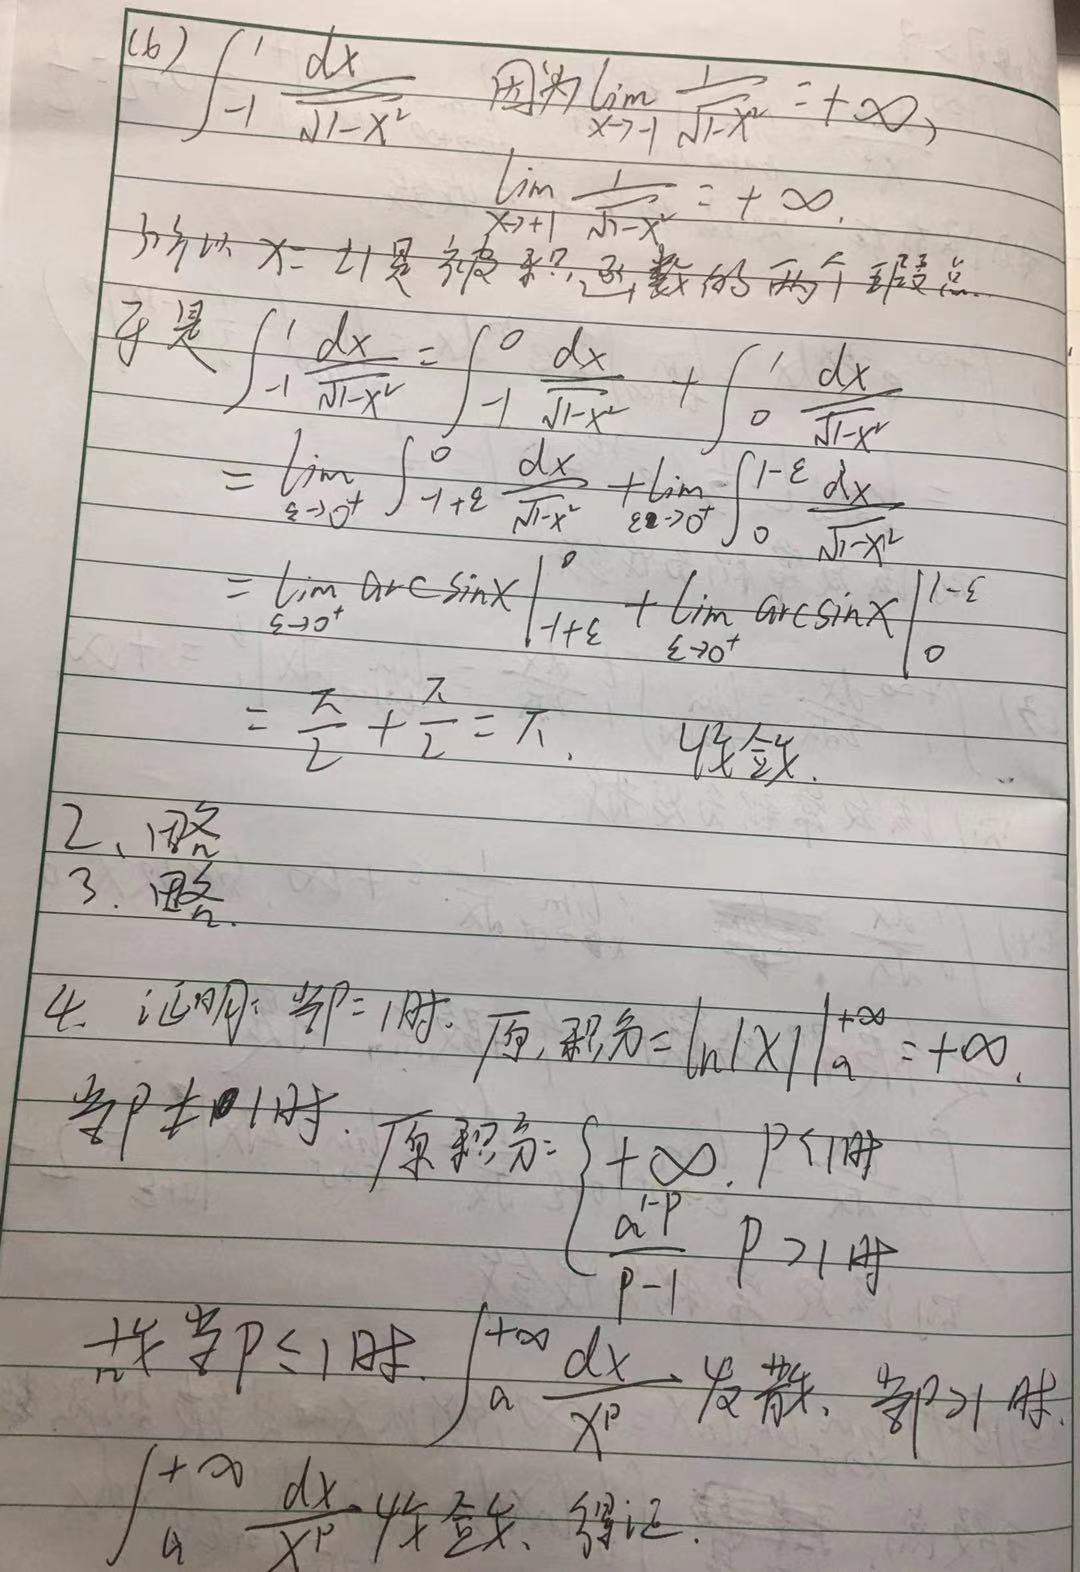 (6) ∫_{-1}^{1} dx/√(1-x²) 因为 lim_{x→-1} 1/√(1-x²) = +∞,
lim_{x→+1} 1/√(1-x²) = +∞.
所以 x=±1是被积函数的两个瑕点.
于是 ∫_{-1}^{1} dx/√(1-x²) = ∫_{-1}^{0} dx/√(1-x²) + ∫_{0}^{1} dx/√(1-x²)
= lim_{ε→0⁺} ∫_{-1+ε}^{0} dx/√(1-x²) + lim_{ε→0⁺} ∫_{0}^{1-ε} dx/√(1-x²)
= lim_{ε→0⁺} arcsinx |_{-1+ε}^{0} + lim_{ε→0⁺} arcsinx |_{0}^{1-ε}
= π/2 + π/2 = π. 收敛.
2、略
3. 略.
4. 证明: 当P=1时. 原积分= ln|x| |_{a}^{+∞} = +∞.
当P≠1时. 原积分= { +∞. P<1时
a^{1-P}/(P-1) P>1时
故当P≤1时. ∫_{a}^{+∞} dx/x^P 发散、当P>1时.
∫_{a}^{+∞} dx/x^P 收敛、得证.